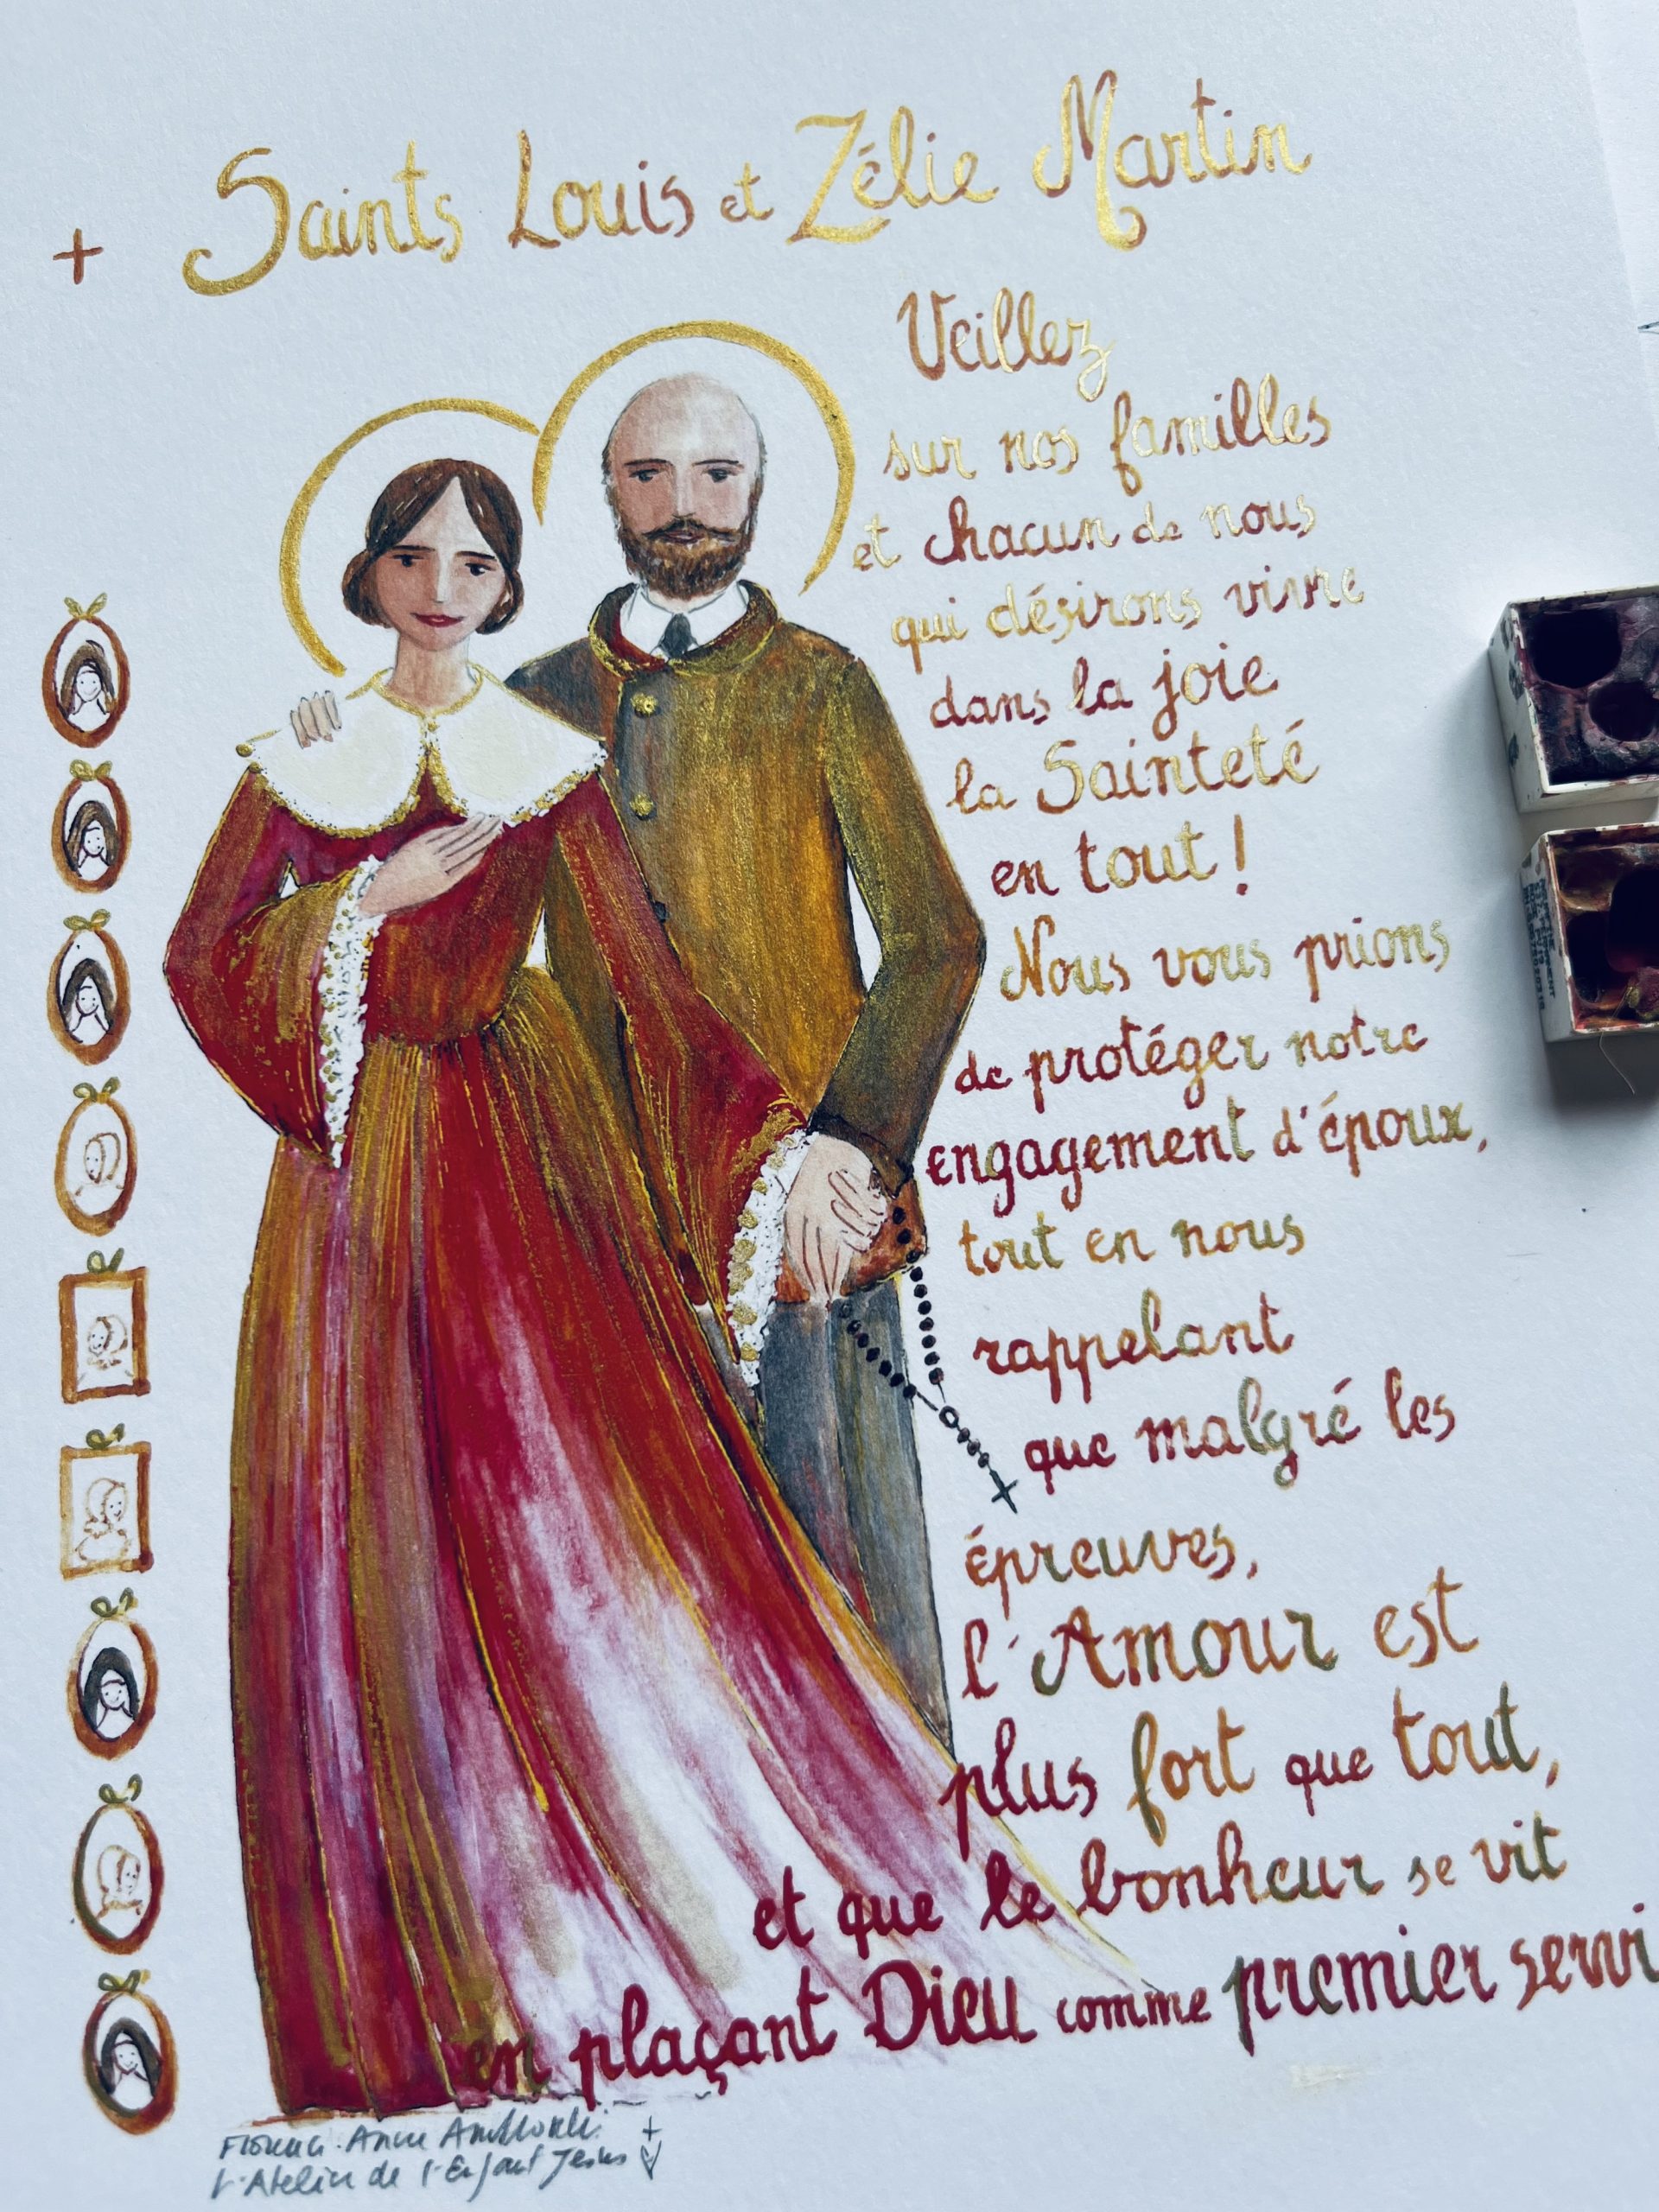 + Saints Louis et Zélie Martin
Veillez
sur nos familles
et chacun de nous
qui désirons vivre
dans la joie
la Sainteté
en tout !
Nous vous prions
de protéger notre
engagement d'époux,
tout en nous
rappelant
que malgré les
épreuves,
l'Amour est
plus fort que tout,
et que le bonheur se vit
en plaçant Dieu comme premier servi
Anne
L'Atelier de l'Enfant Jésus